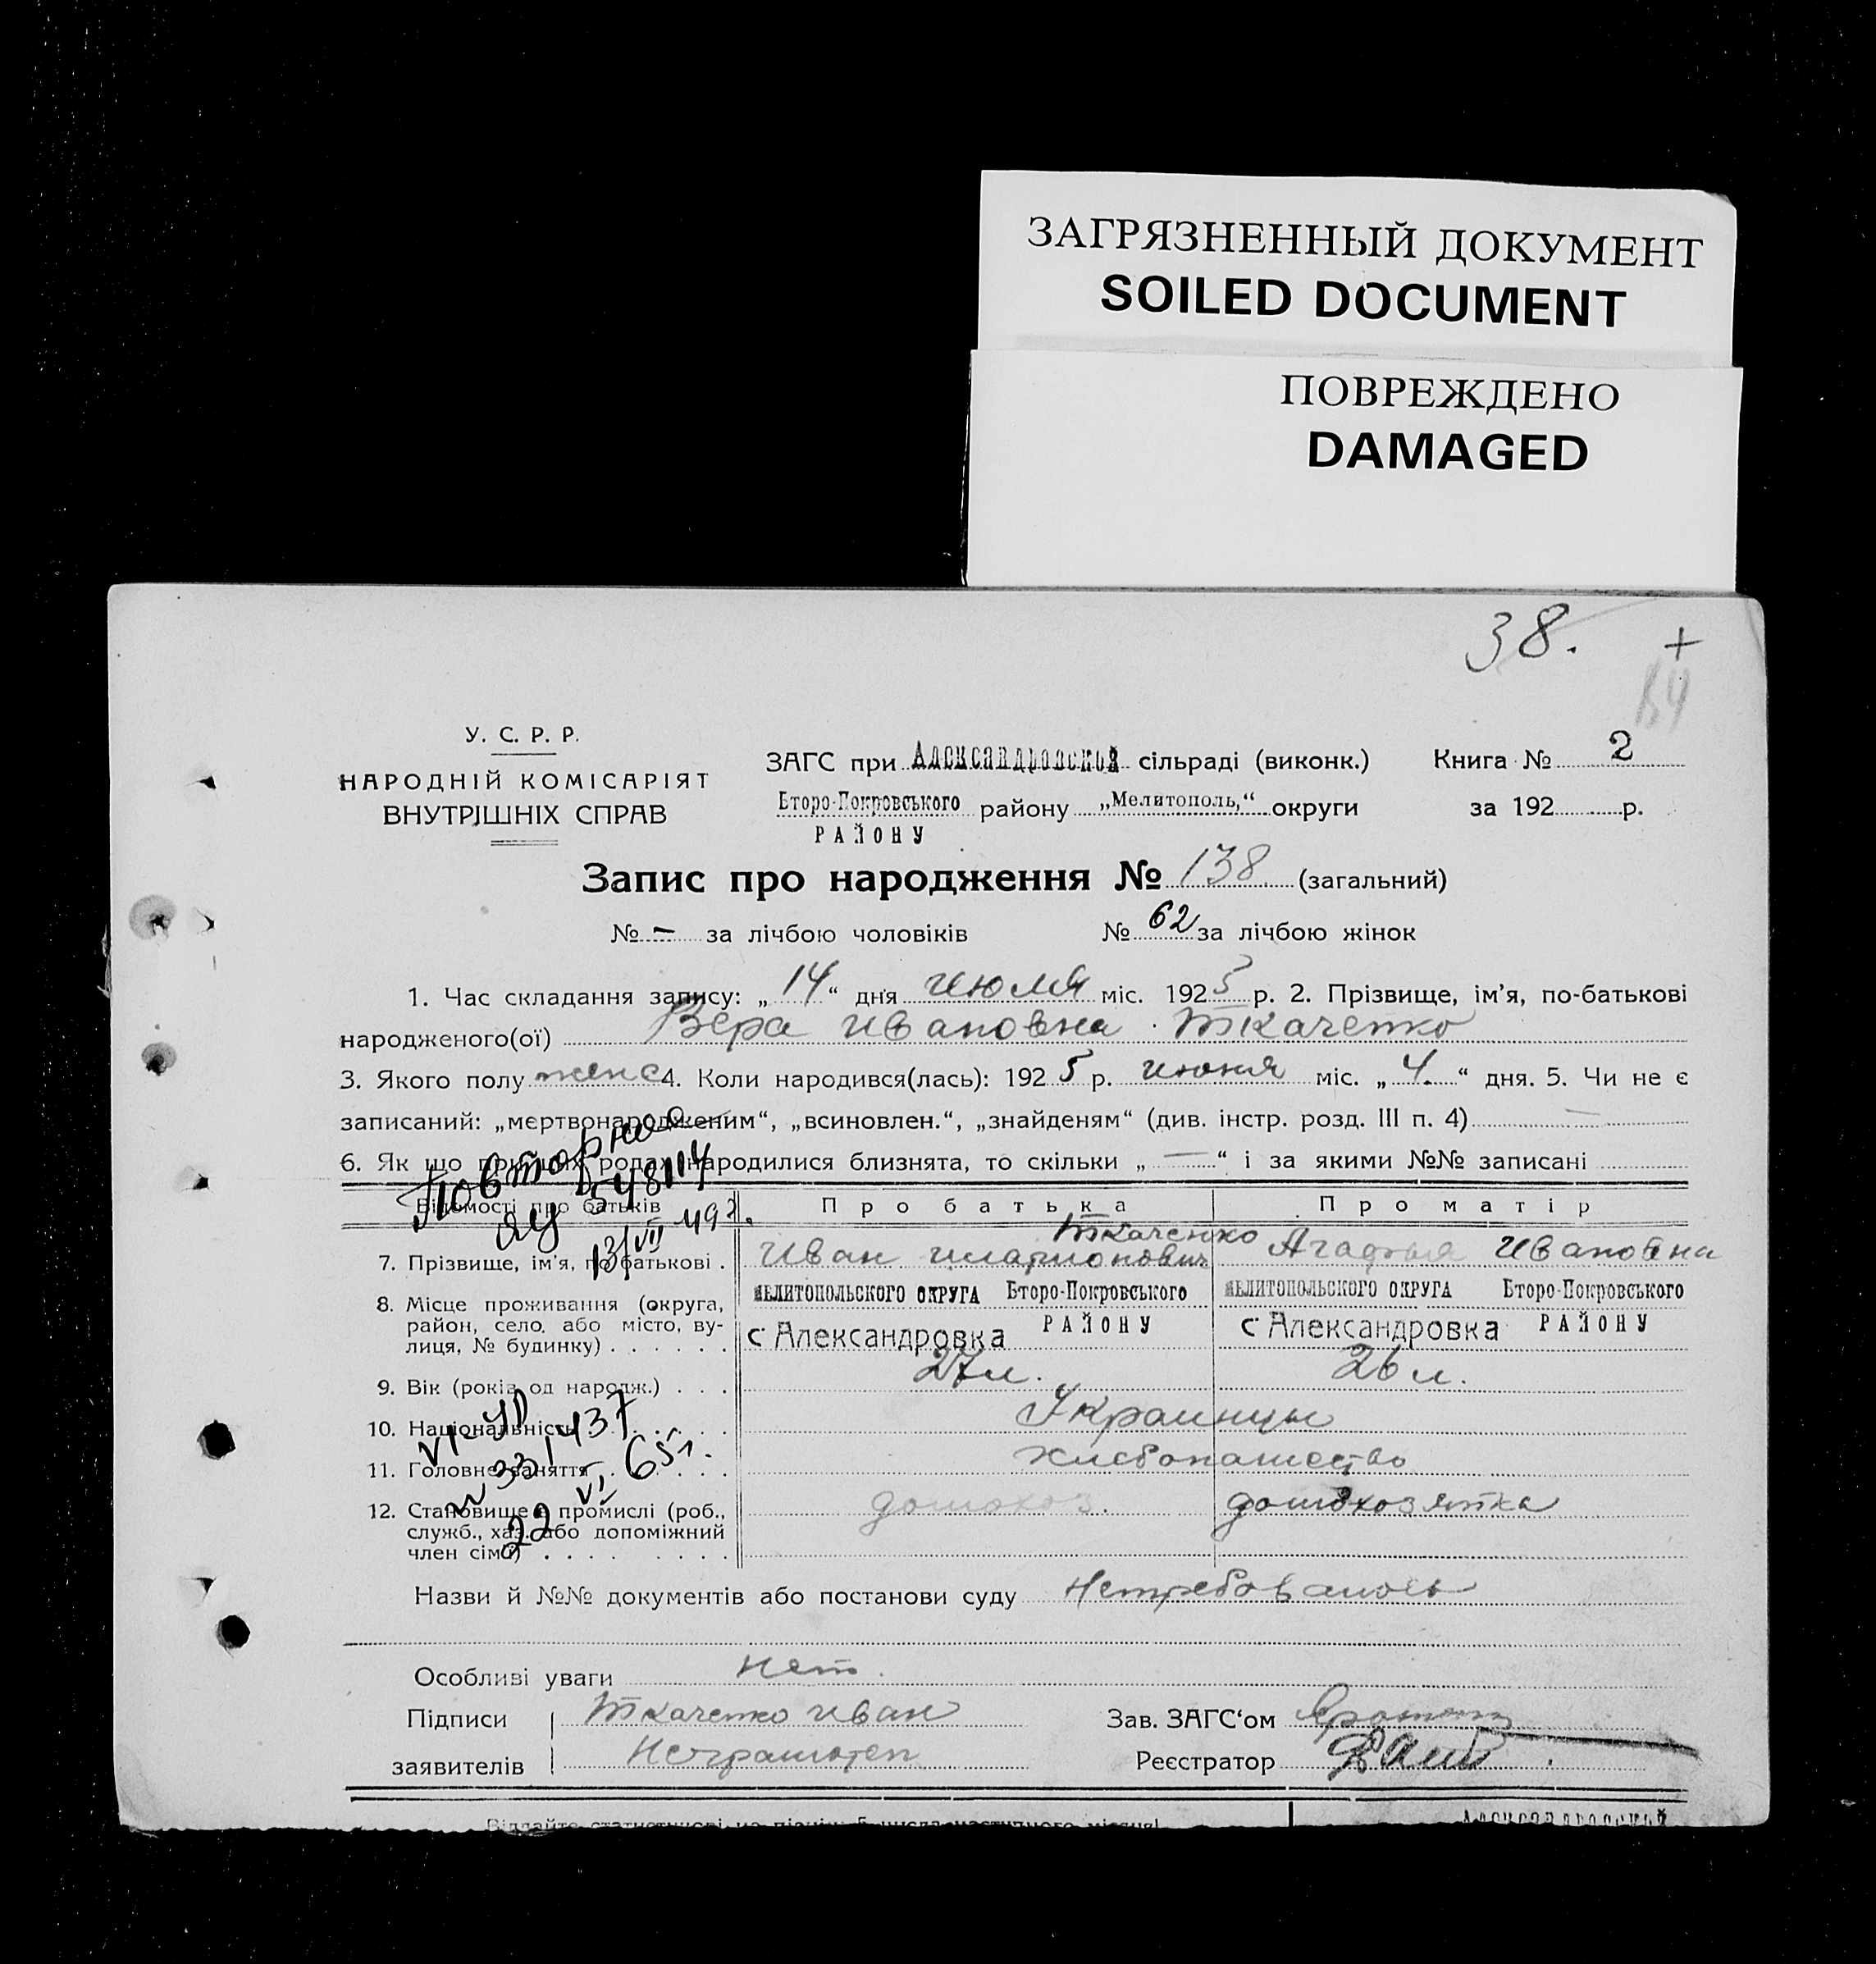 ЗАГРЯЗНЕННЫЙ ДОКУМЕНТ
SOILED DOCUMENT
ПОВРЕЖДЕНО
DAMAGED
38. +
У. С. Р. Р.
НАРОДНІЙ КОМІСАРІЯТ
ВНУТРІШНІХ СПРАВ
ЗАГС при Александровской сільраді (виконк.) Книга № 2
Второ-Покровського району „Мелитополь,“ округи за 192 р.
РАЙОНУ
Запис про народження № 138 (загальний)
№ — за лічбою чоловіків № 62 за лічбою жінок
1. Час складання запису: „14“ дня июля міс. 1925 р. 2. Прізвище, ім’я, по-батькові
народженого(ої) Вера Ивановна Ткаченко
3. Якого полу женс 4. Коли народився(лась): 1925 р. июня міс. „4.“ дня. 5. Чи не є
записаний: „мертвонародженим“, „всиновлен.“, „знайденям“ (див. інстр. розд. III п. 4) —
6. Як що при цих родах народилися близнята, то скільки „—“ і за якими №№ записані
Повторное
ЯЦ 548114
13/VII 49г.
Відомості про батьків Про батька Про матір
Ткаченко
7. Прізвище, ім’я, по батькові . Иван Иларионович Агафья Ивановна
8. Місце проживання (округа, район, село, або місто, вулиця, № будинку) . . . . . .
МЕЛИТОПОЛЬСКОГО ОКРУГА Второ-Покровського МЕЛИТОПОЛЬСКОГО ОКРУГА Второ-Покровського
с Александровка РАЙОНУ с Александровка РАЙОНУ
9. Вік (років од народж.) . . . 27 л. 26 л.
10. Національність . . . . . Украинцы
11. Головне заняття . . . . . Хлебопашество
12. Становище в промислі (роб., служб., хаз. або допоміжний член сімї) . . . . . . . . домохоз. домохозяйка
331437
22 VI 65г.
Назви й №№ документів або постанови суду Нетребовалось
Особливі уваги нет.
Підписи Ткаченко Иван Зав. ЗАГС‘ом
заявителів Неграмотен Реєстратор
Віддайте статистикові не пізніш 5 числа наступного місяця! Александровской